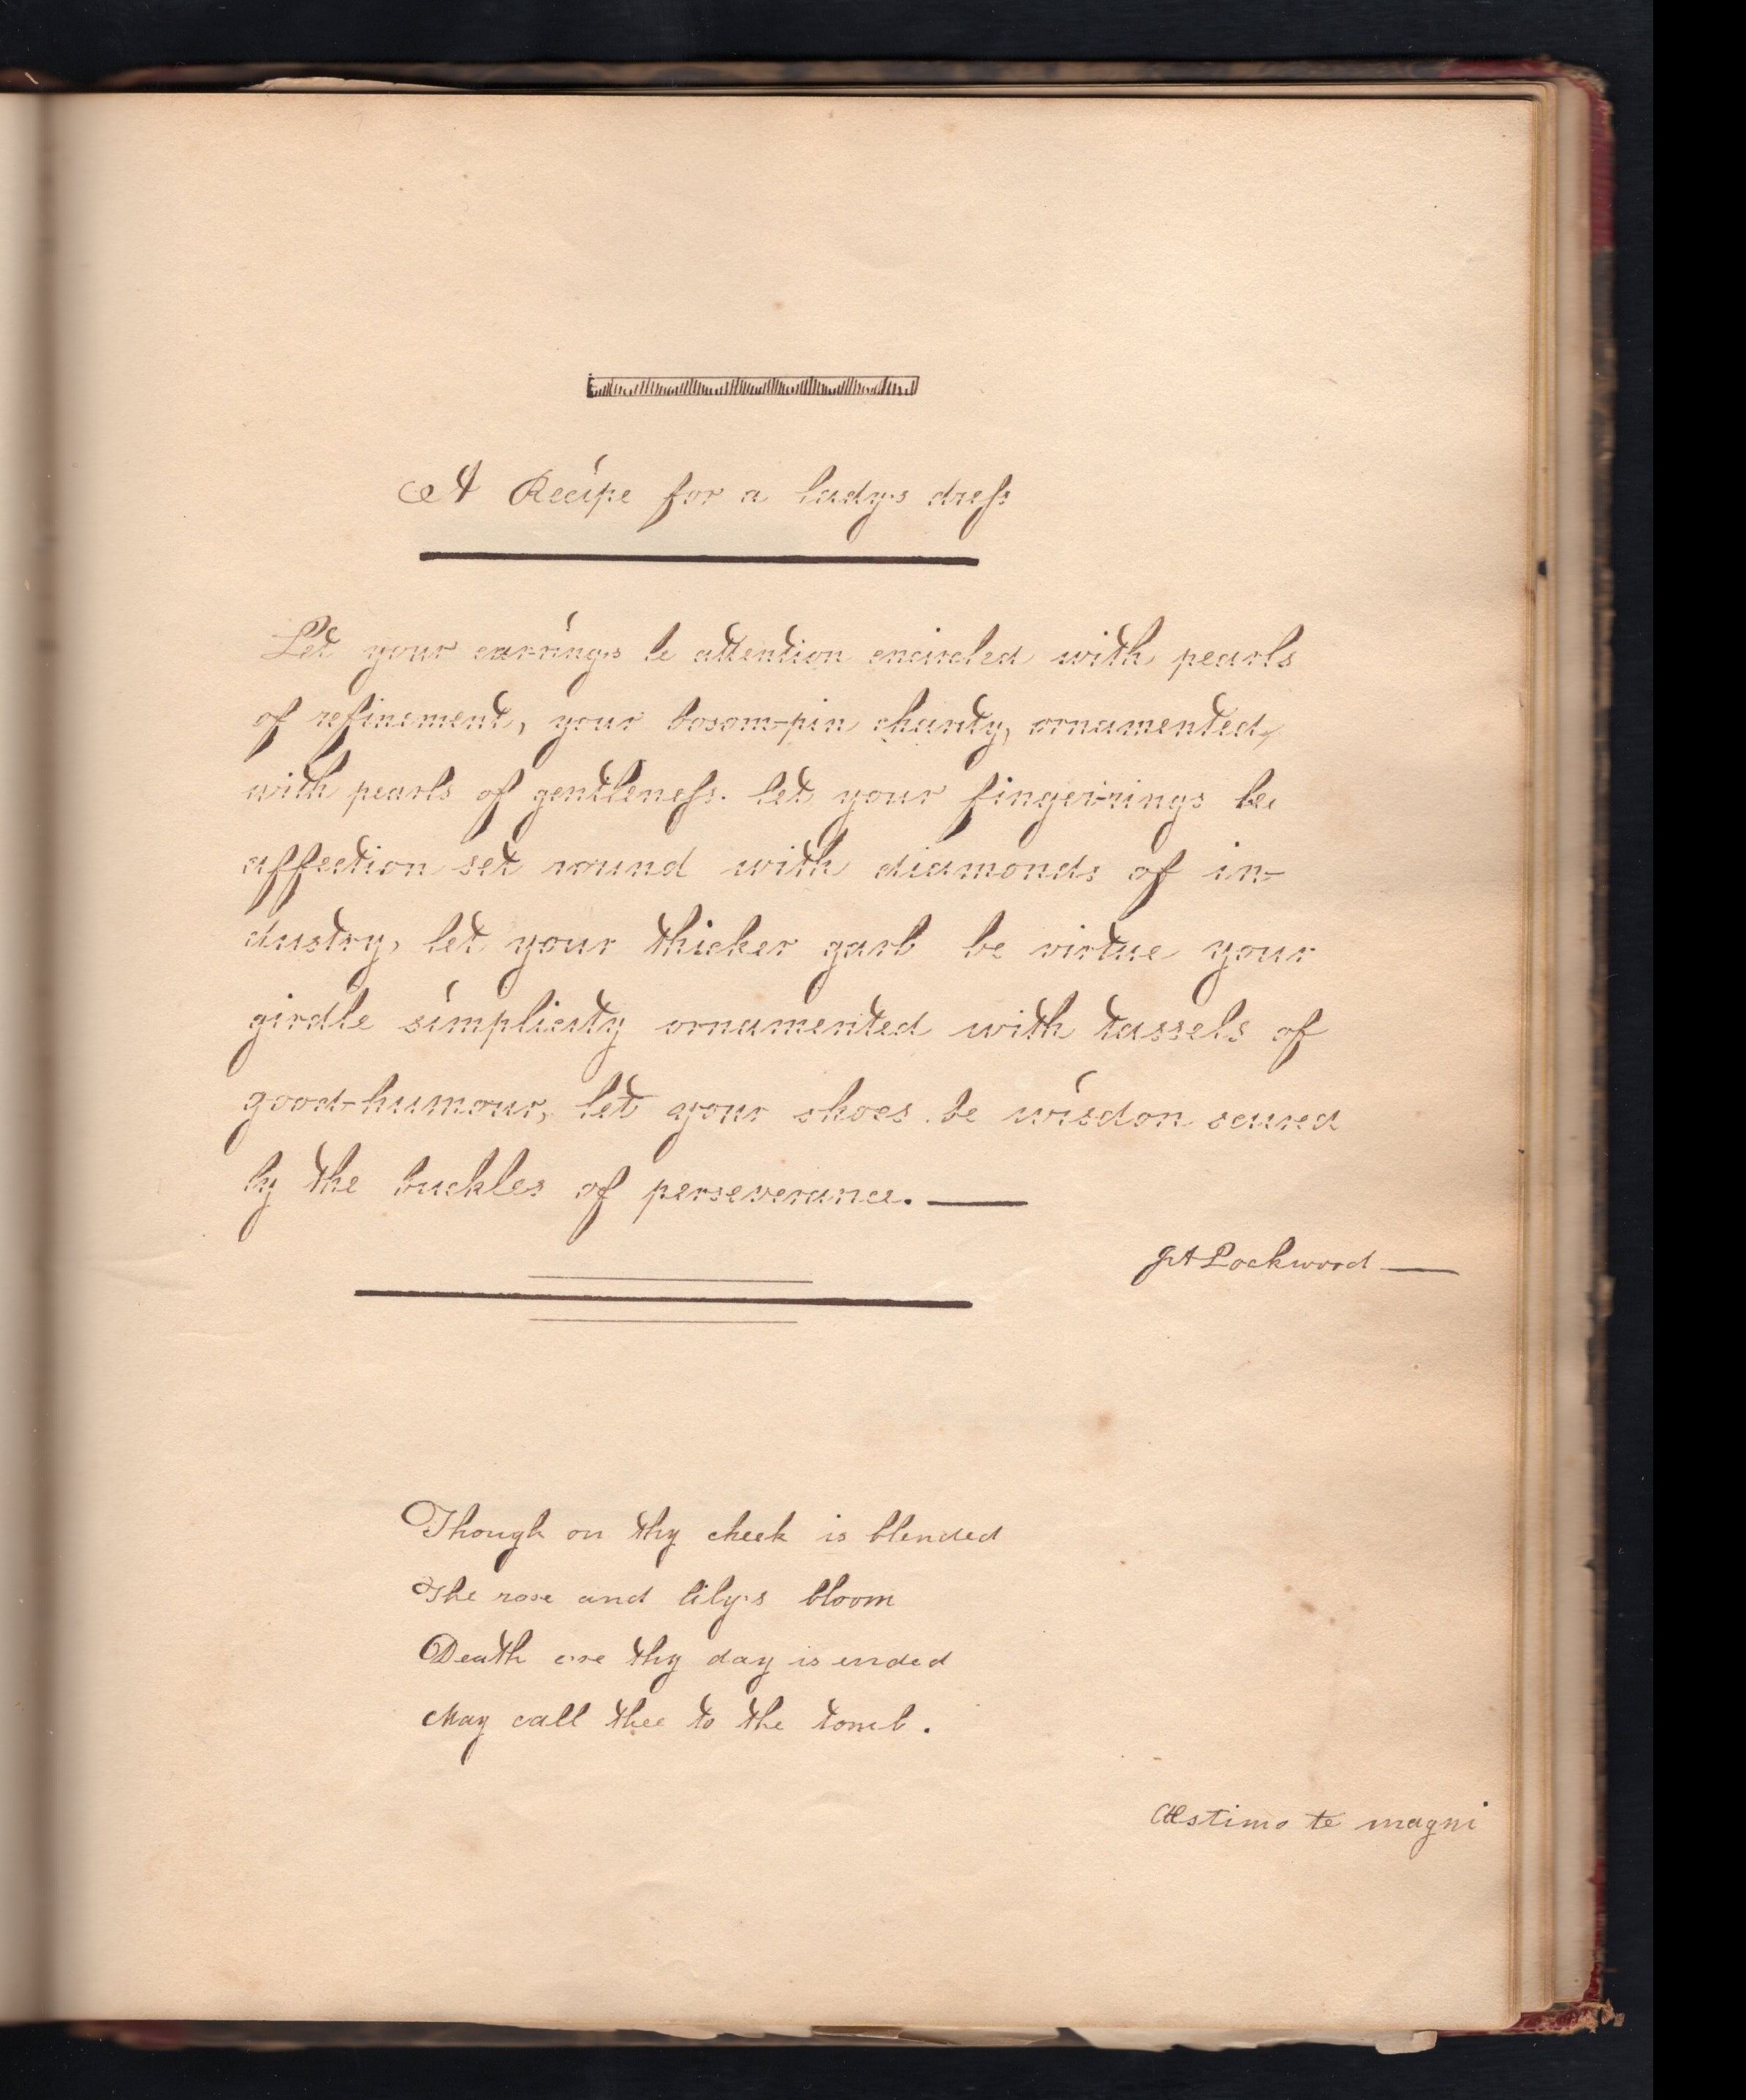 A Recipe for a lady's dress
Let your earrings be attention encircled with pearls
of refinement, your bosom-pin charity, ornamented,
with pearls of gentleness. let your finger-rings be
affection set round with diamonds of in-
dustry, let your thicker garb be virtue your
girdle simplicity ornamented with tassels of
good-humour, let your shoes be wisdon scured
by the buckles of perseverance.
Lockwood
Though on thy cheek is blended
The rose and lily's bloom
Death ere thy day is ended
May call thee to the tomb.
Æstimo te magni